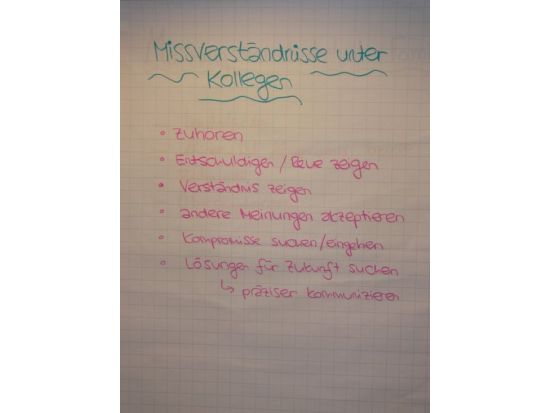 Missverständnisse unter
Kollegen
• zuhören
• Entschuldigen / Reue zeigen
• Verständnis zeigen
• andere Meinungen akzeptieren
• Kompromisse suchen/eingehen
• Lösungen für Zukunft suchen
↳ präziser kommunizieren